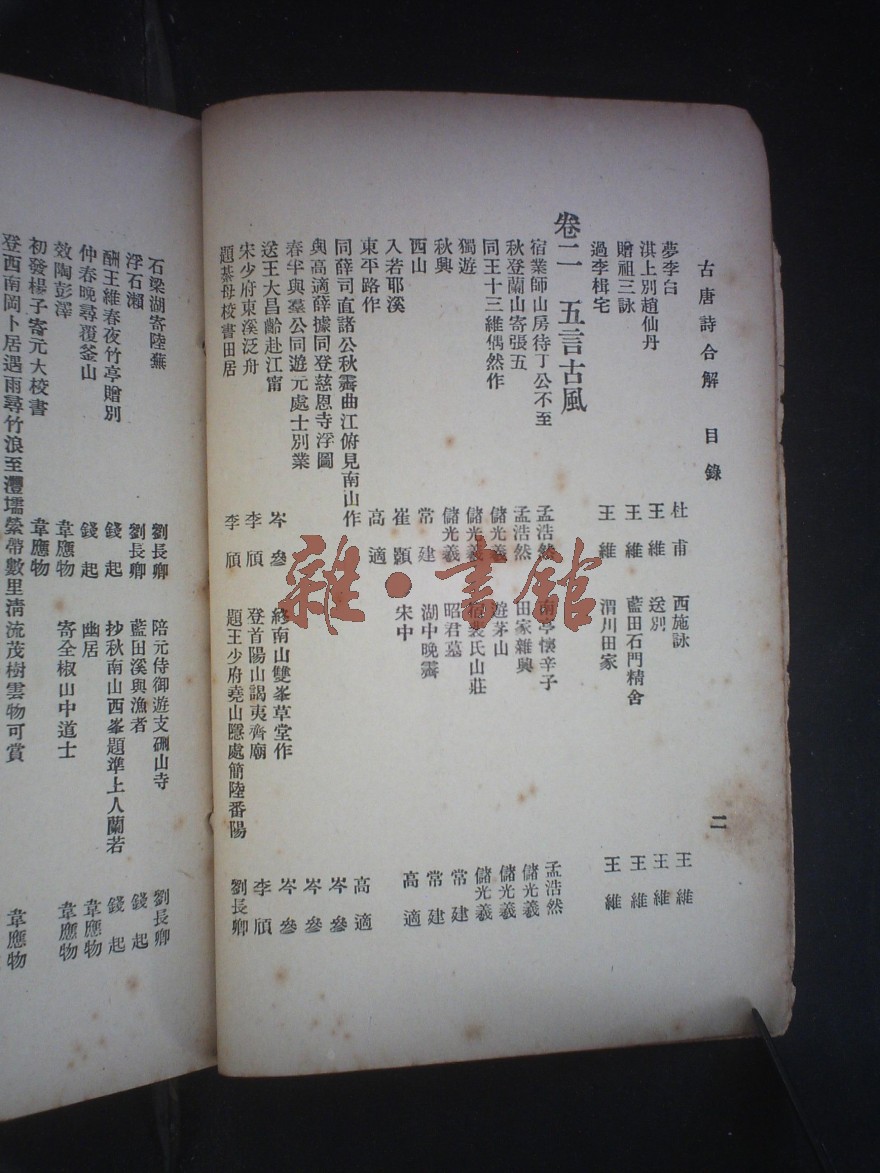 古唐詩合解 目錄 二
夢李白 杜甫 西施詠 王維
淇上別趙仙丹 王維 送別 王維
贈祖三詠 王維 藍田石門精舍 王維
過李楫宅 王維 渭川田家 王維
卷二 五言古風
宿業師山房待丁公不至 孟浩然 南亭懷辛子 孟浩然
秋登蘭山寄張五 孟浩然 田家雜興 儲光羲
同王十三維偶然作 儲光羲 遊茅山 儲光羲
獨遊 儲光羲 裴氏山莊 儲光羲
秋興 儲光羲 昭君墓 常建
西山 常建 湖中晚霽 常建
入若耶溪 崔顥 宋中 高適
東平路作 高適
同薛司直諸公秋霽曲江俯見南山作 高適
與高適薛據同登慈恩寺浮圖 岑參
春半與羣公同遊元處士別業 岑參
送王大昌齡赴江甯 岑參 終南山雙峯草堂作 岑參
宋少府東溪泛舟 李頎 登首陽山謁夷齊廟 李頎
題綦母校書田居 李頎 題王少府堯山隱處簡陸番陽 劉長卿
石梁湖寄陸蕪 劉長卿 陪元侍御遊支硎山寺 劉長卿
浮石瀨 劉長卿 藍田溪與漁者 錢起
酬王維春夜竹亭贈別 錢起 抄秋南山西峯題準上人蘭若 錢起
仲春晚尋覆釜山 錢起 幽居 韋應物
效陶彭澤 韋應物 寄全椒山中道士 韋應物
初發楊子寄元大校書 韋應物
登西南岡卜居遇雨尋竹浪至灃壖縈帶數里清流茂樹雲物可賞 韋應物
雜·書館